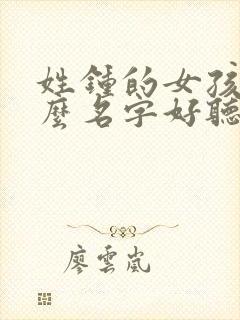 姓鍾的女孩
麼名字好聽
廖雲嵐